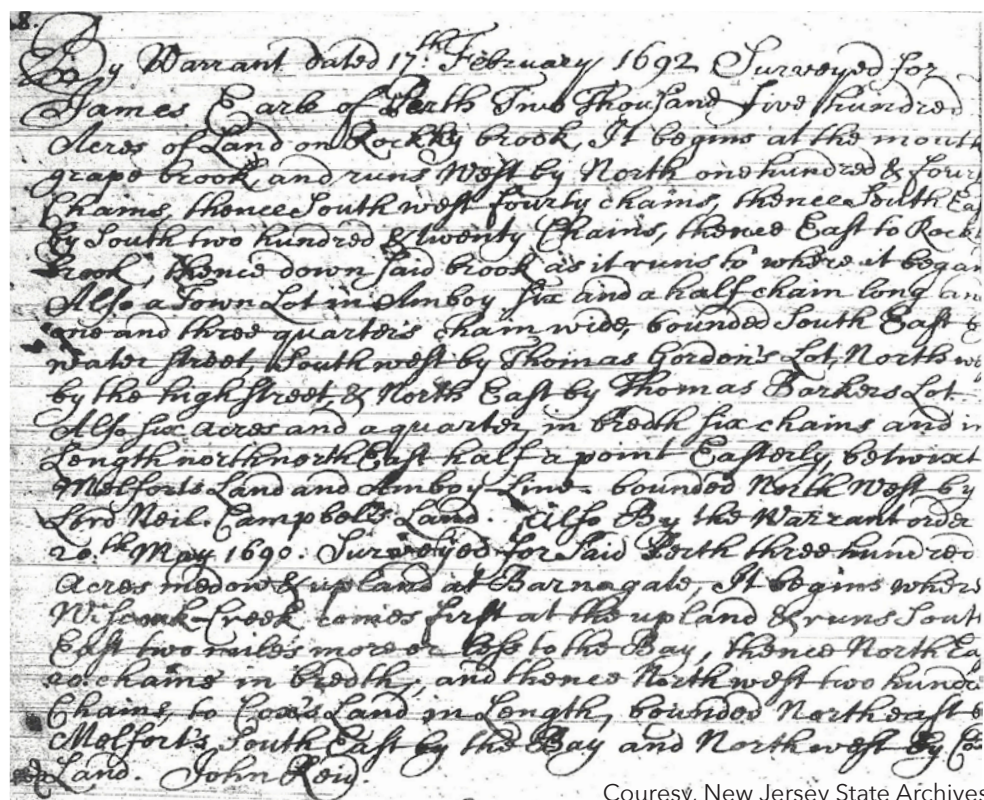 8.
By Warrant dated 17.th February 1692 Surveyed for
James Earle of Perth Two Thousand five hundred
Acres of Land on Rockky brook, It begins at the mouth
grape brook, and runs West by North one hundred & four
Chains, thence South west fourty chains, thence South Eas
by South two hundred & twenty Chains, thence East to Rock
brook, thence down said brook as it runs to where it began
Also a Town Lot in Amboy six and a half chain long an
one and three quarters chain wide, bounded South East
water street, South west by Thomas Gordon's Lot, North we
by the high street, & North East by Thomas Barkers Lot
Also six acres and a quarter, in bredth six chains and in
Length north north East half a point Easterly, betwixt
Melforts Land and Amboy Line. bounded North West by
Lord Neil. Campbell's Land. Also By the Warrant order
20.th May 1690. Surveyed for Said Perth three hundred
Acres medow & upland at Barnagate, It begins where
Creek comes first at the upland & runs Sout
East two miles more or less to the Bay, thence North Ea
20. chains in bredth, and thence North west two hundr
Chains, to Coxs Land in Length, bounded North east
Melfort's, South East by the Bay and North west By Co
Land. John Reid.
Couresy, New Jersey State Archives